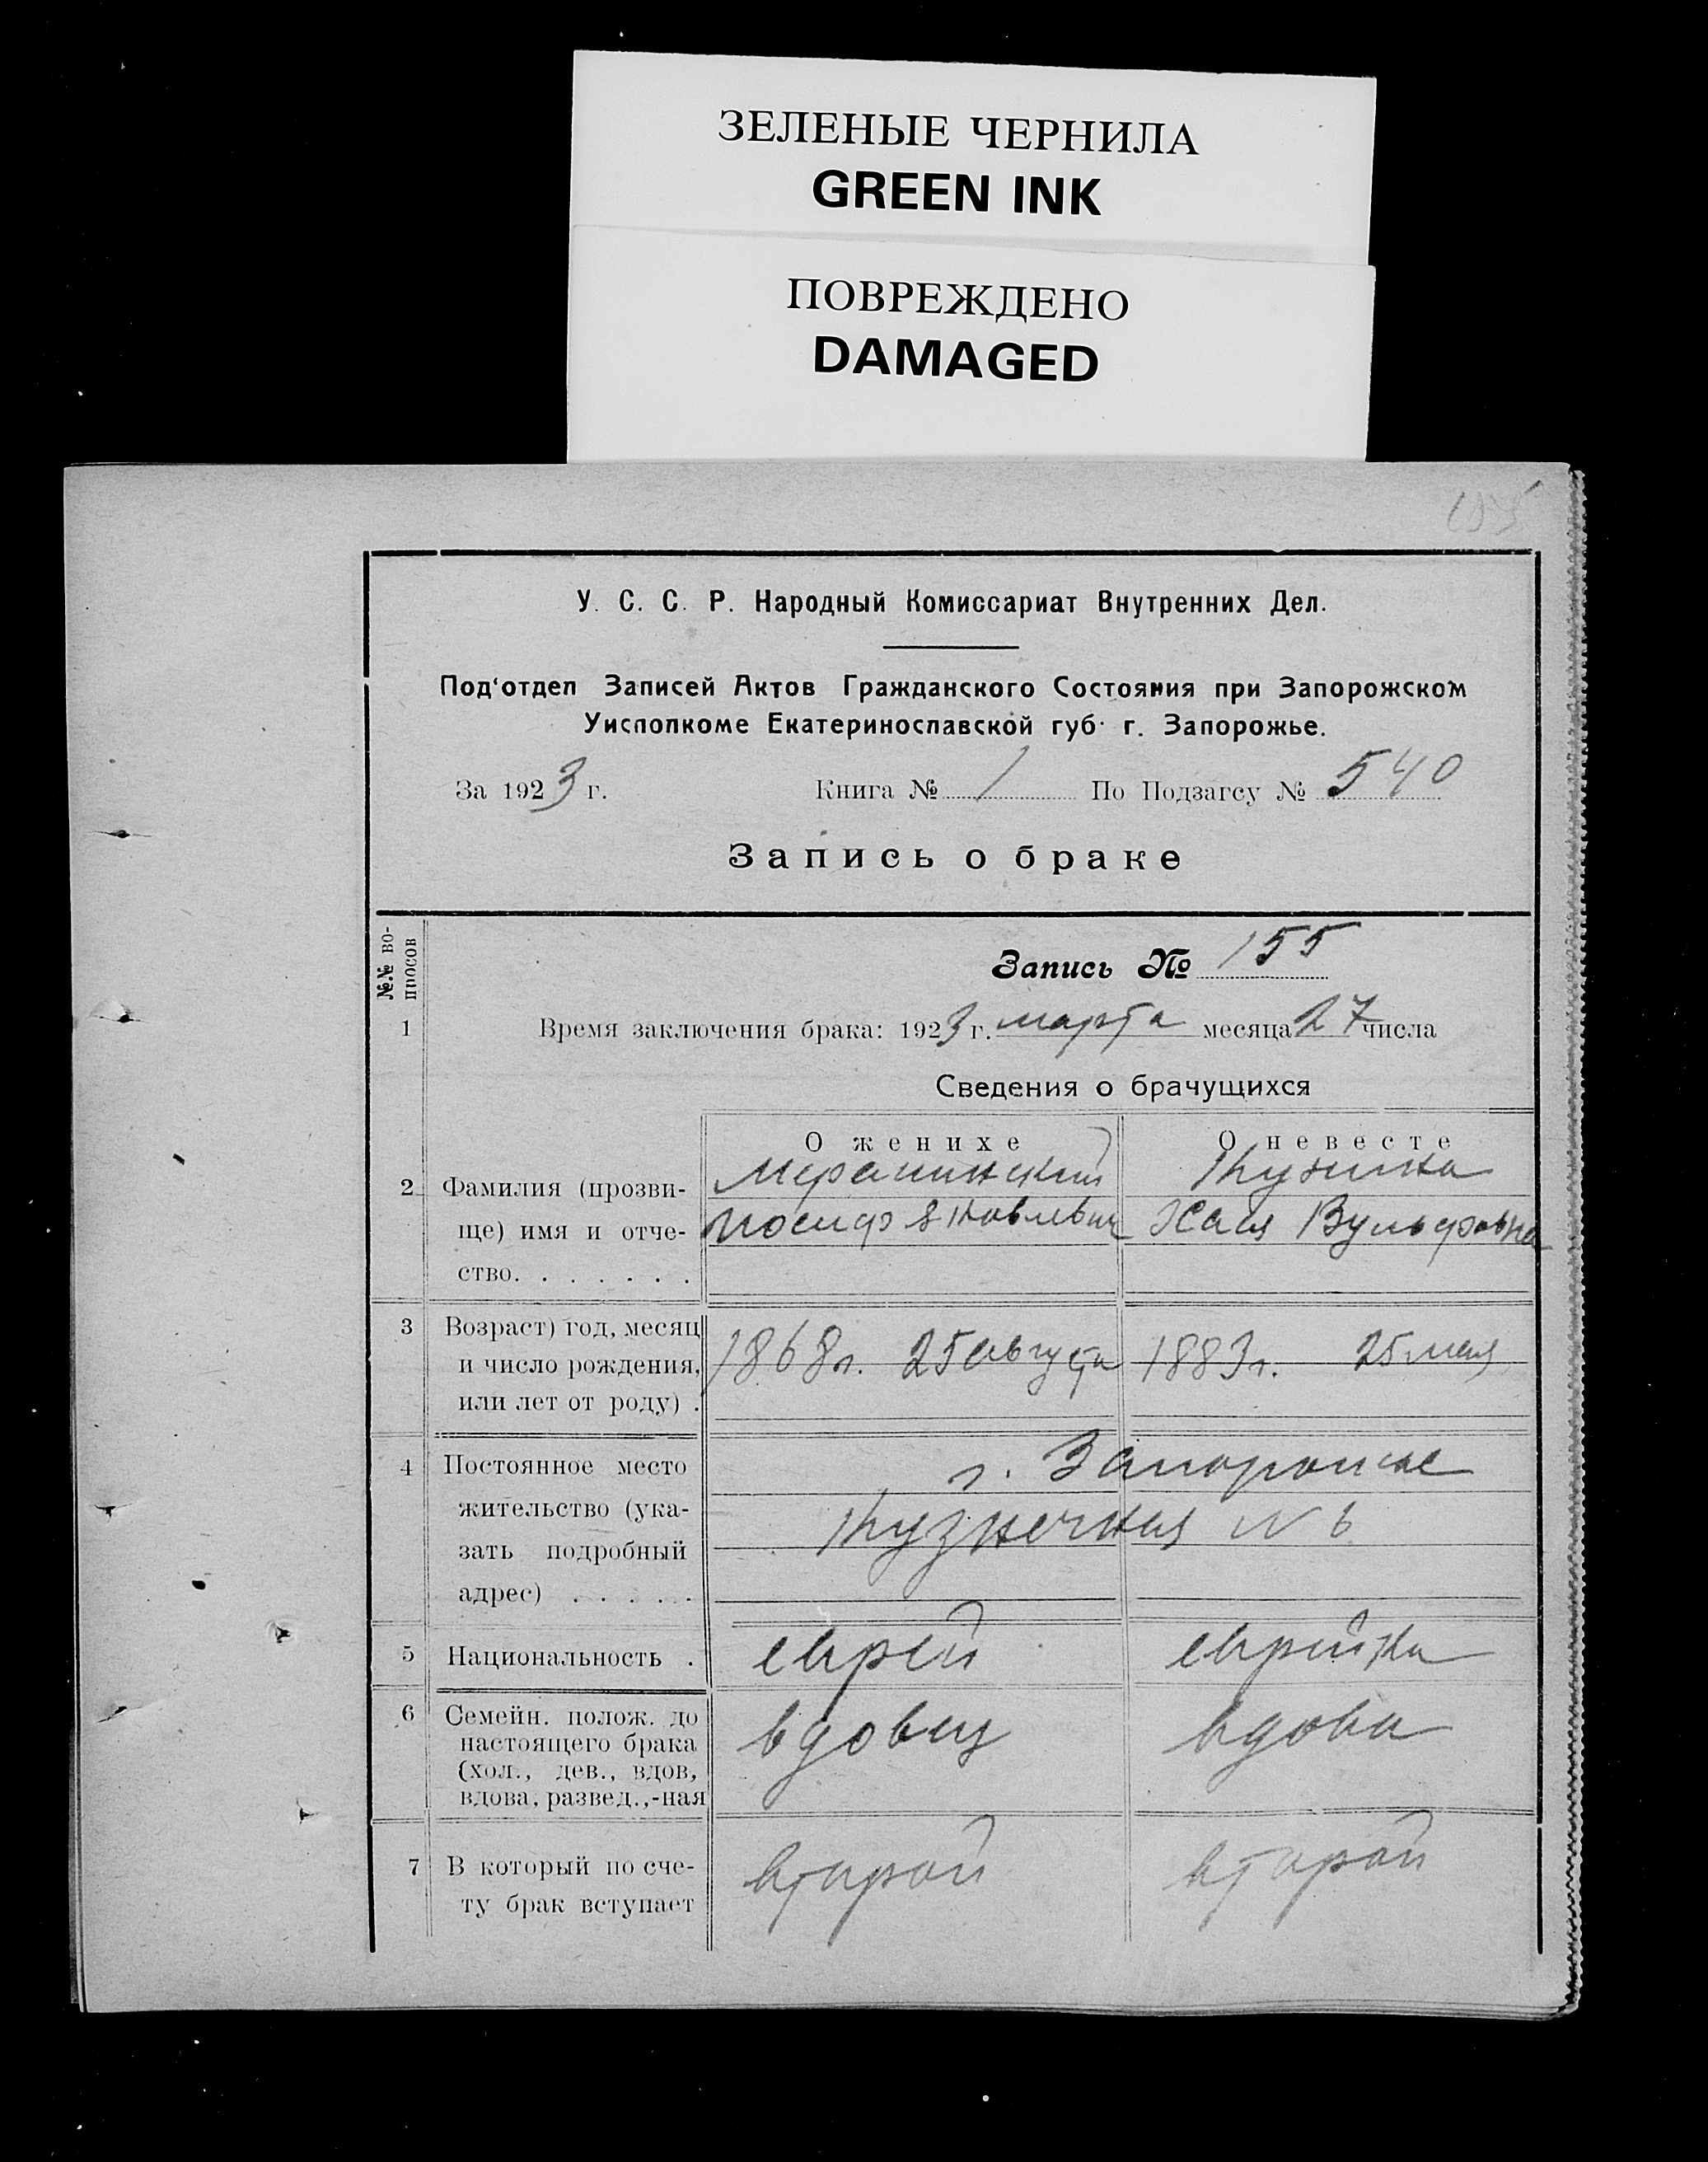 ЗЕЛЕНЫЕ ЧЕРНИЛА
GREEN INK
ПОВРЕЖДЕНО
DAMAGED
У. С. С. Р. Народный Комиссариат Внутренних Дел.
Под‘отдел Записей Актов Гражданского Состояния при Запорожском
Уисполкоме Екатеринославской губ. г. Запорожье.
За 1923 г. Книга № 1 По Подзагсу № 540
Запись о браке
№№ во-
просов
Запись № 155
1 Время заключения брака: 1923 г. марта месяца 27 числа
Сведения о брачущихся
О женихе О невесте
2 Фамилия (прозви-
ще) имя и отче- Иосиф Яковлевич Хася Вульфовна
ство. . . . . . .
3 Возраст) год, месяц
и число рождения, 1868 г. 25 августа 1883 г. 25 мая
или лет от роду) .
4 Постоянное место г. Запорожье
жительство (ука- Кузнечная N 6
зать подробный
адрес) . . . . .
5 Национальность . еврей еврейка
6 Семейн. полож. до
настоящего брака вдовец вдова
(хол., дев., вдов,
вдова, развед.,-ная
7 В который по сче- второй второй
ту брак вступает